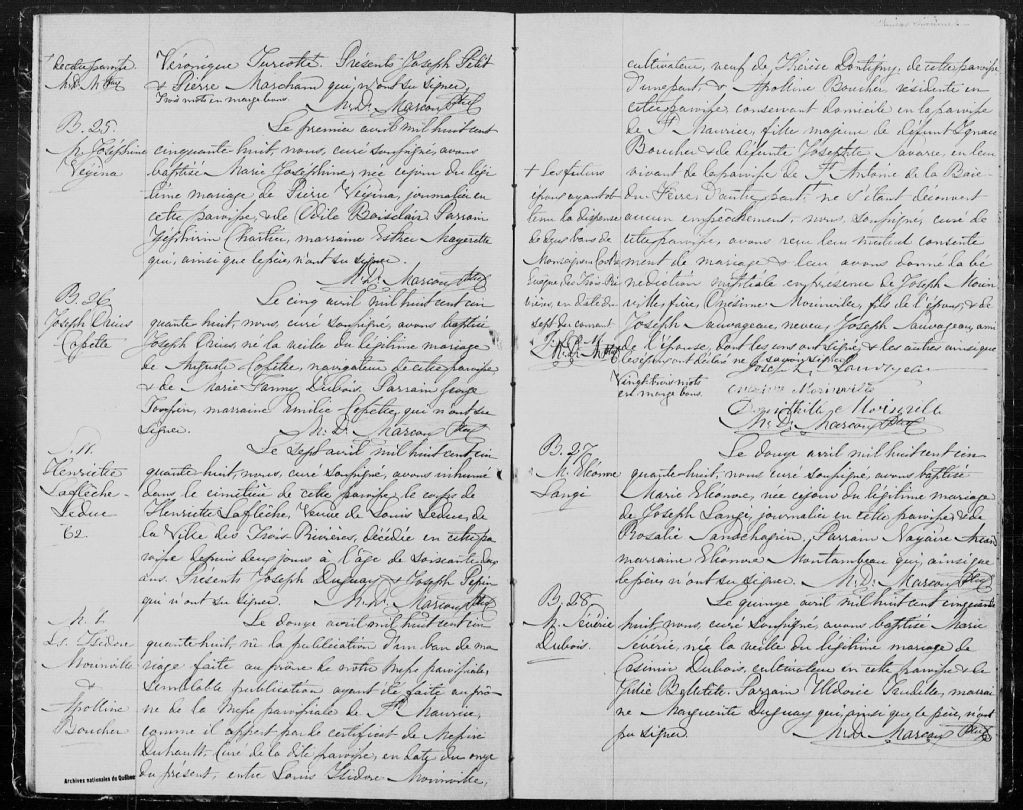 Véronique Turcotte Présents Joseph Petit
& Pierre Marchand qui n'ont su signer.
Trois mots en marge bons.
M. D. Marcoux Ptre
de cette paroisse
M. D. M. Ptre
B. 25.
M. Joséphine
Vézina
Le premier avril mil huit cent
cinquante-huit, nous, curé soussigné, avons
baptisé Marie Joséphine, née ce jour du légi
time mariage de Pierre Vézina, journalier en
cette paroisse, & de Odile Boisclair Parrain
Zéphirin Chartier, marraine Esther Mayerette
qui, ainsi que le père, n'ont su signer.
M. D. Marcoux Ptre
B. 26
Joseph Orius
Copette
Le cinq avril mil huit cent cin
quante huit, nous, curé soussigné, avons baptisé
Joseph Orius, né la veille du légitime mariage
de Auguste Copette, navigateur de cette paroisse
& de Marie Fanny Dubois. Parrain George
marraine Emilie Copette, qui n'ont su
signer.
M. D. Marcoux Ptre
S. 11.
Henriette
Laflèche
Leduc
62.
Le sept avril mil huit cent cin
quante huit, nous, curé soussigné, avons inhumé
dans le cimetière de cette paroisse, le corps de
Henriette Laflèche, Veuve de Louis Leduc, de
la Ville des Trois Rivières, décédée en cette pa
roisse depuis deux jours à l'âge de soixante deux
ans. Présents Joseph Duguay & Joseph Pepin
qui n'ont su signer.
M. D. Marcoux Ptre
M. 6.
Ls. Isidore
Moinville
&
Apolline
Boucher
Le douze avril mil huit cent cin
quante huit, vû la publication d'un ban de ma
riage faite au prône de notre messe paroissiale,
semblable publication ayant été faite au prô
ne de la messe paroissiale de St Maurice,
comme il appert par le certificat de Messire
Duhault, Curé de la dite paroisse, en date du onze
du présent, entre Louis Isidore Moinville,
Archives nationales du Québec
cultivateur, veuf de Thérèse Dontigny, de cette paroisse
d'une part, & Apolline Boucher résidente en
cette paroisse, conservant domicile en la paroisse
de St Maurice, fille majeure de défunt Ignace
Boucher & de défunte Josephte Savarie, en leur
vivant de la paroisse de St Antoine de la Baie
du Febvre, d'autre part. ne s'étant découvert
aucun empêchement, nous, soussigné, curé de
cette paroisse, avons reçu leur mutuel consente
ment de mariage & leur avons donné la bé
nédiction nuptiale en présence de Joseph Moin
ville, frère, Onésime Moinville, fils de l'époux, & de
Joseph Sauvageau, neveu, Joseph Sauvageau, ami
de l'épouse, dont les uns ont signé, & les autres ainsi que
les époux ont déclaré ne savoir signer.
+ Les futurs
époux ayant ob
tenu la dispense
de deux bans de
Monseigneur Cooke
Evêque des Trois Ri
vières, en date du
sept du courant
M. D. M. Ptre
Vingt trois mots
en marge bons.
Joseph Sauvageau
Onésime Moinville
Moinville
M. D. Marcoux Ptre
B. 27
M. Eléonore
Langé
Le douze avril mil huit cent cin
quante-huit, nous curé soussigné, avons baptisé
Marie Eléonore, née ce jour du légitime mariage
de Joseph Langé, journalier en cette paroisse, & de
Rosalie Sanschagrin. Parrain Nazaire
marraine Eléonore Montambeau qui, ainsi que
le père, n'ont su signer. M. D. Marcoux Ptre
B. 28
M. Sévérie
Dubois.
Le quinze avril mil huit cent cinquante
huit, nous, curé soussigné, avons baptisé Marie
Sévérie, née la veille du légitime mariage de
Casimir Dubois, cultivateur en cette paroisse & de
Julie Belletête. Parrain Isidore Trudelle, marrai
ne Marguerite Duguay qui, ainsi que le père, n'ont
pu signer.
M. D. Marcoux Ptre